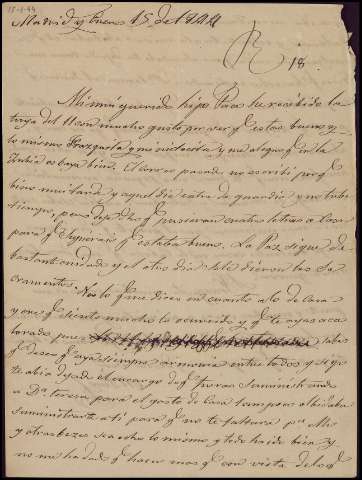 15-1-44
Madrid y Enero 15 de 1844
R 18.
Mi muy querido hijo Paco he recibido la
tuya del 11 con mucho gusto por ver q.e estas bueno y
lo mismo Frazquita y me alegro q.e en la
te baya bien. El correo pasado no escribi porq.e
y aquel dia entra de guardia y no tube
tiempo, pero dije q.e pusieran cuatro letras a Casa
para q.e Supierais q.e estaba bueno. La Paz sigue de
bastante cuidado y el otro dia le dieron los Sa
cramentos. Beo lo q.e me dices en cuanto a lo de Casa
y creo q.e siento mucho lo ocurrido y q.e te ayas aca
lorado pues sabes
q.e deseo q.e aya siempre armonia entre todos y si yo
te abia dejado el encargo de q.e fueras Suministrando
a D.a teresa para el gasto de Casa tampoco olbidaba
Suministrarte a ti para q.e no te faltara p.a
y otras bezes sea esto lo mismo y todo ha ido bien y
no me ha dado q.e hacer mas q.e con vista del